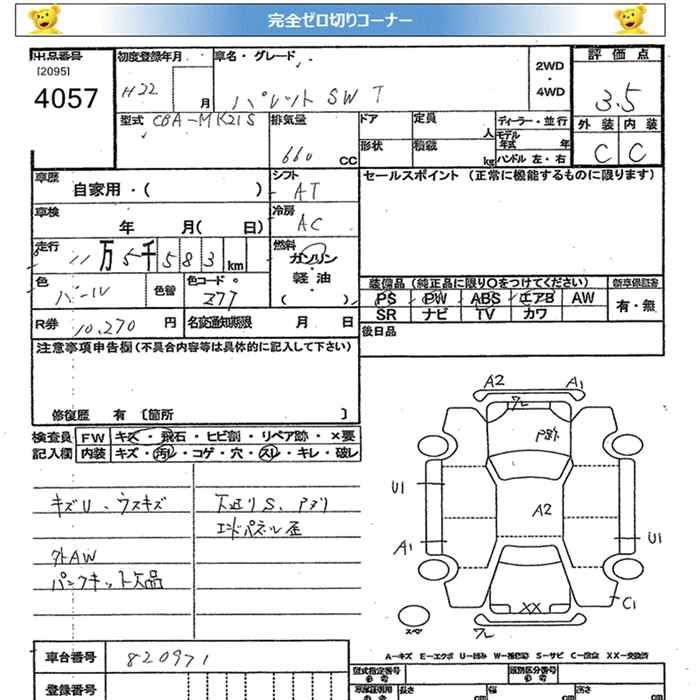 完全ゼロ切りコーナー
出品番号
[2095]
4057
初度登録年月
H22
月
車名・グレード
パレットSW T
2WD
・
4WD
評価点
3.5
外装 内装
C C
型式
CBA-MK21S
排気量
660 CC
ドア
定員
人
形状
積載
kg
ディーラー・並行
モデル年式 年
ハンドル 左・右
車歴
自家用・( )
シフト
AT
セールスポイント (正常に機能するものに限ります)
車検
年 月( 日)
冷房
AC
走行
11万5千583km
燃料
ガソリン
・
軽油
( )
色
パール
色替
色コード
Z77
装備品(純正品に限り○をつけてください)
新車保証書
PS PW ABS エアB AW
SR ナビ TV カワ
有・無
R券
10,270円
名変通知期限 月 日
後日品
注意事項申告欄(不具合内容等は具体的に記入して下さい)
修復歴 有 [箇所 ]
検査員記入欄
FW キズ・飛石・ヒビ割・リペア跡・×要
内装 キズ・汚レ・コゲ・穴・スレ・キレ・破レ
キズU・ウスキズ
下廻りS、Pサリ
エンドパネル歪
外AW
パンクキット欠品
A2 A1
ワレ
A2
U1
A1
U1
C1
XX
ワレ
スペア
A-キズ E-エクボ U-凹み W-補修跡 S-サビ C-腐食 XX-交換済
車台番号
820971
登録番号
型式指定番号
類別区分番号
長さ cm
幅 cm
高さ cm